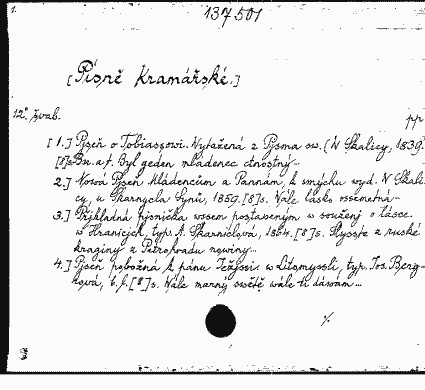 1.
137501
[Písně kramářské.]
12°. švab.
pp
[1.] Pjseň o Tobiaszowi. Wytažená z Pjsma sw. (W Skalicy, 1839.
[8]s. Bu. a f. Byl geden mládenec ctnostný...
2.] Nowá Pjseň Mládencům a Pannám, k smjchu wyd. W Skali-
cy, u Škarnycla Synů, 1859. [8]s. Wále lásko
3.] Přjkladná pjsnička wssem postaweným w sauženj o lásce.
w Hranicých, typ. A. Škarniclová, 1864. [8]s. Slyšte z ruské
kraginy z Petrohradu nowiny...
4.] Pjseň pobožná k pánu Ježjssi. w Litomyssli, typ. Jos. Berg-
rová, b. l. [8]s. Wále marný swěte wále ti dáwám...
%